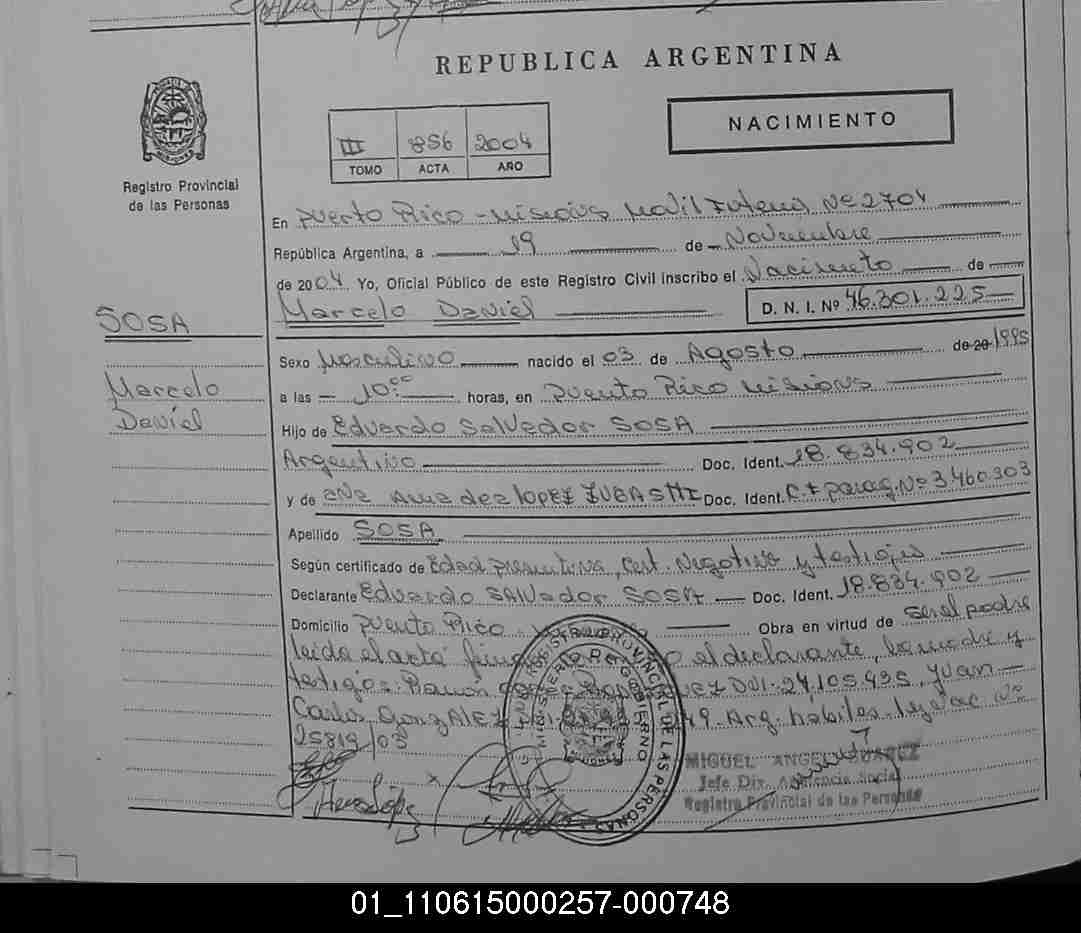 REPUBLICA ARGENTINA
NACIMIENTO
III 856 2004
TOMO ACTA AÑO
Registro Provincial
de las Personas
En Puerto Rico - Misiones Movil Nº 2704
República Argentina, a 19 de Noviembre
de 2004. Yo, Oficial Público de este Registro Civil inscribo el Nacimiento de
Marcelo Daniel D. N. I. Nº 46.301.225
SOSA
Marcelo
Daniel
Sexo Masculino nacido el 03 de Agosto de 20 1995
a las 10:00 horas, en Puerto Rico Misiones
Hijo de Eduardo Salvador SOSA
Argentino Doc. Ident. 18.834.902
y de LOPEZ Doc. Ident. parag. Nº 3.460.303
Apellido SOSA
Según certificado de Edad presuntiva, Cert. Negativo y testigos
Declarante Eduardo SALVador SOSA Doc. Ident. 18.834.902
Domicilio Puerto Rico Obra en virtud de ser el padre
leida el acta el declarante, la madre y
testigos: Ramon DNI. 24.105.435, Juan
Carlos GonzALEZ Arg. habiles, Nº
25819/03
REGISTRO PROVINCIAL DE LAS PERSONAS
MINISTERIO DE GOBIERNO
MIGUEL ANGEL SUAREZ
Jefe Div. Asistencia Social
Registro Provincial de las Personas
01_110615000257-000748